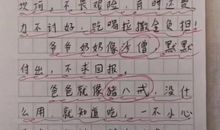 坎坷，不畏艰险，自时还费
力不讨好，吃喝拉撒全负担！
爸爸奶奶像沙僧，默默
付出，不求回报。
爸爸就像猪八戒，没什
么用，就知道吃，一不小心